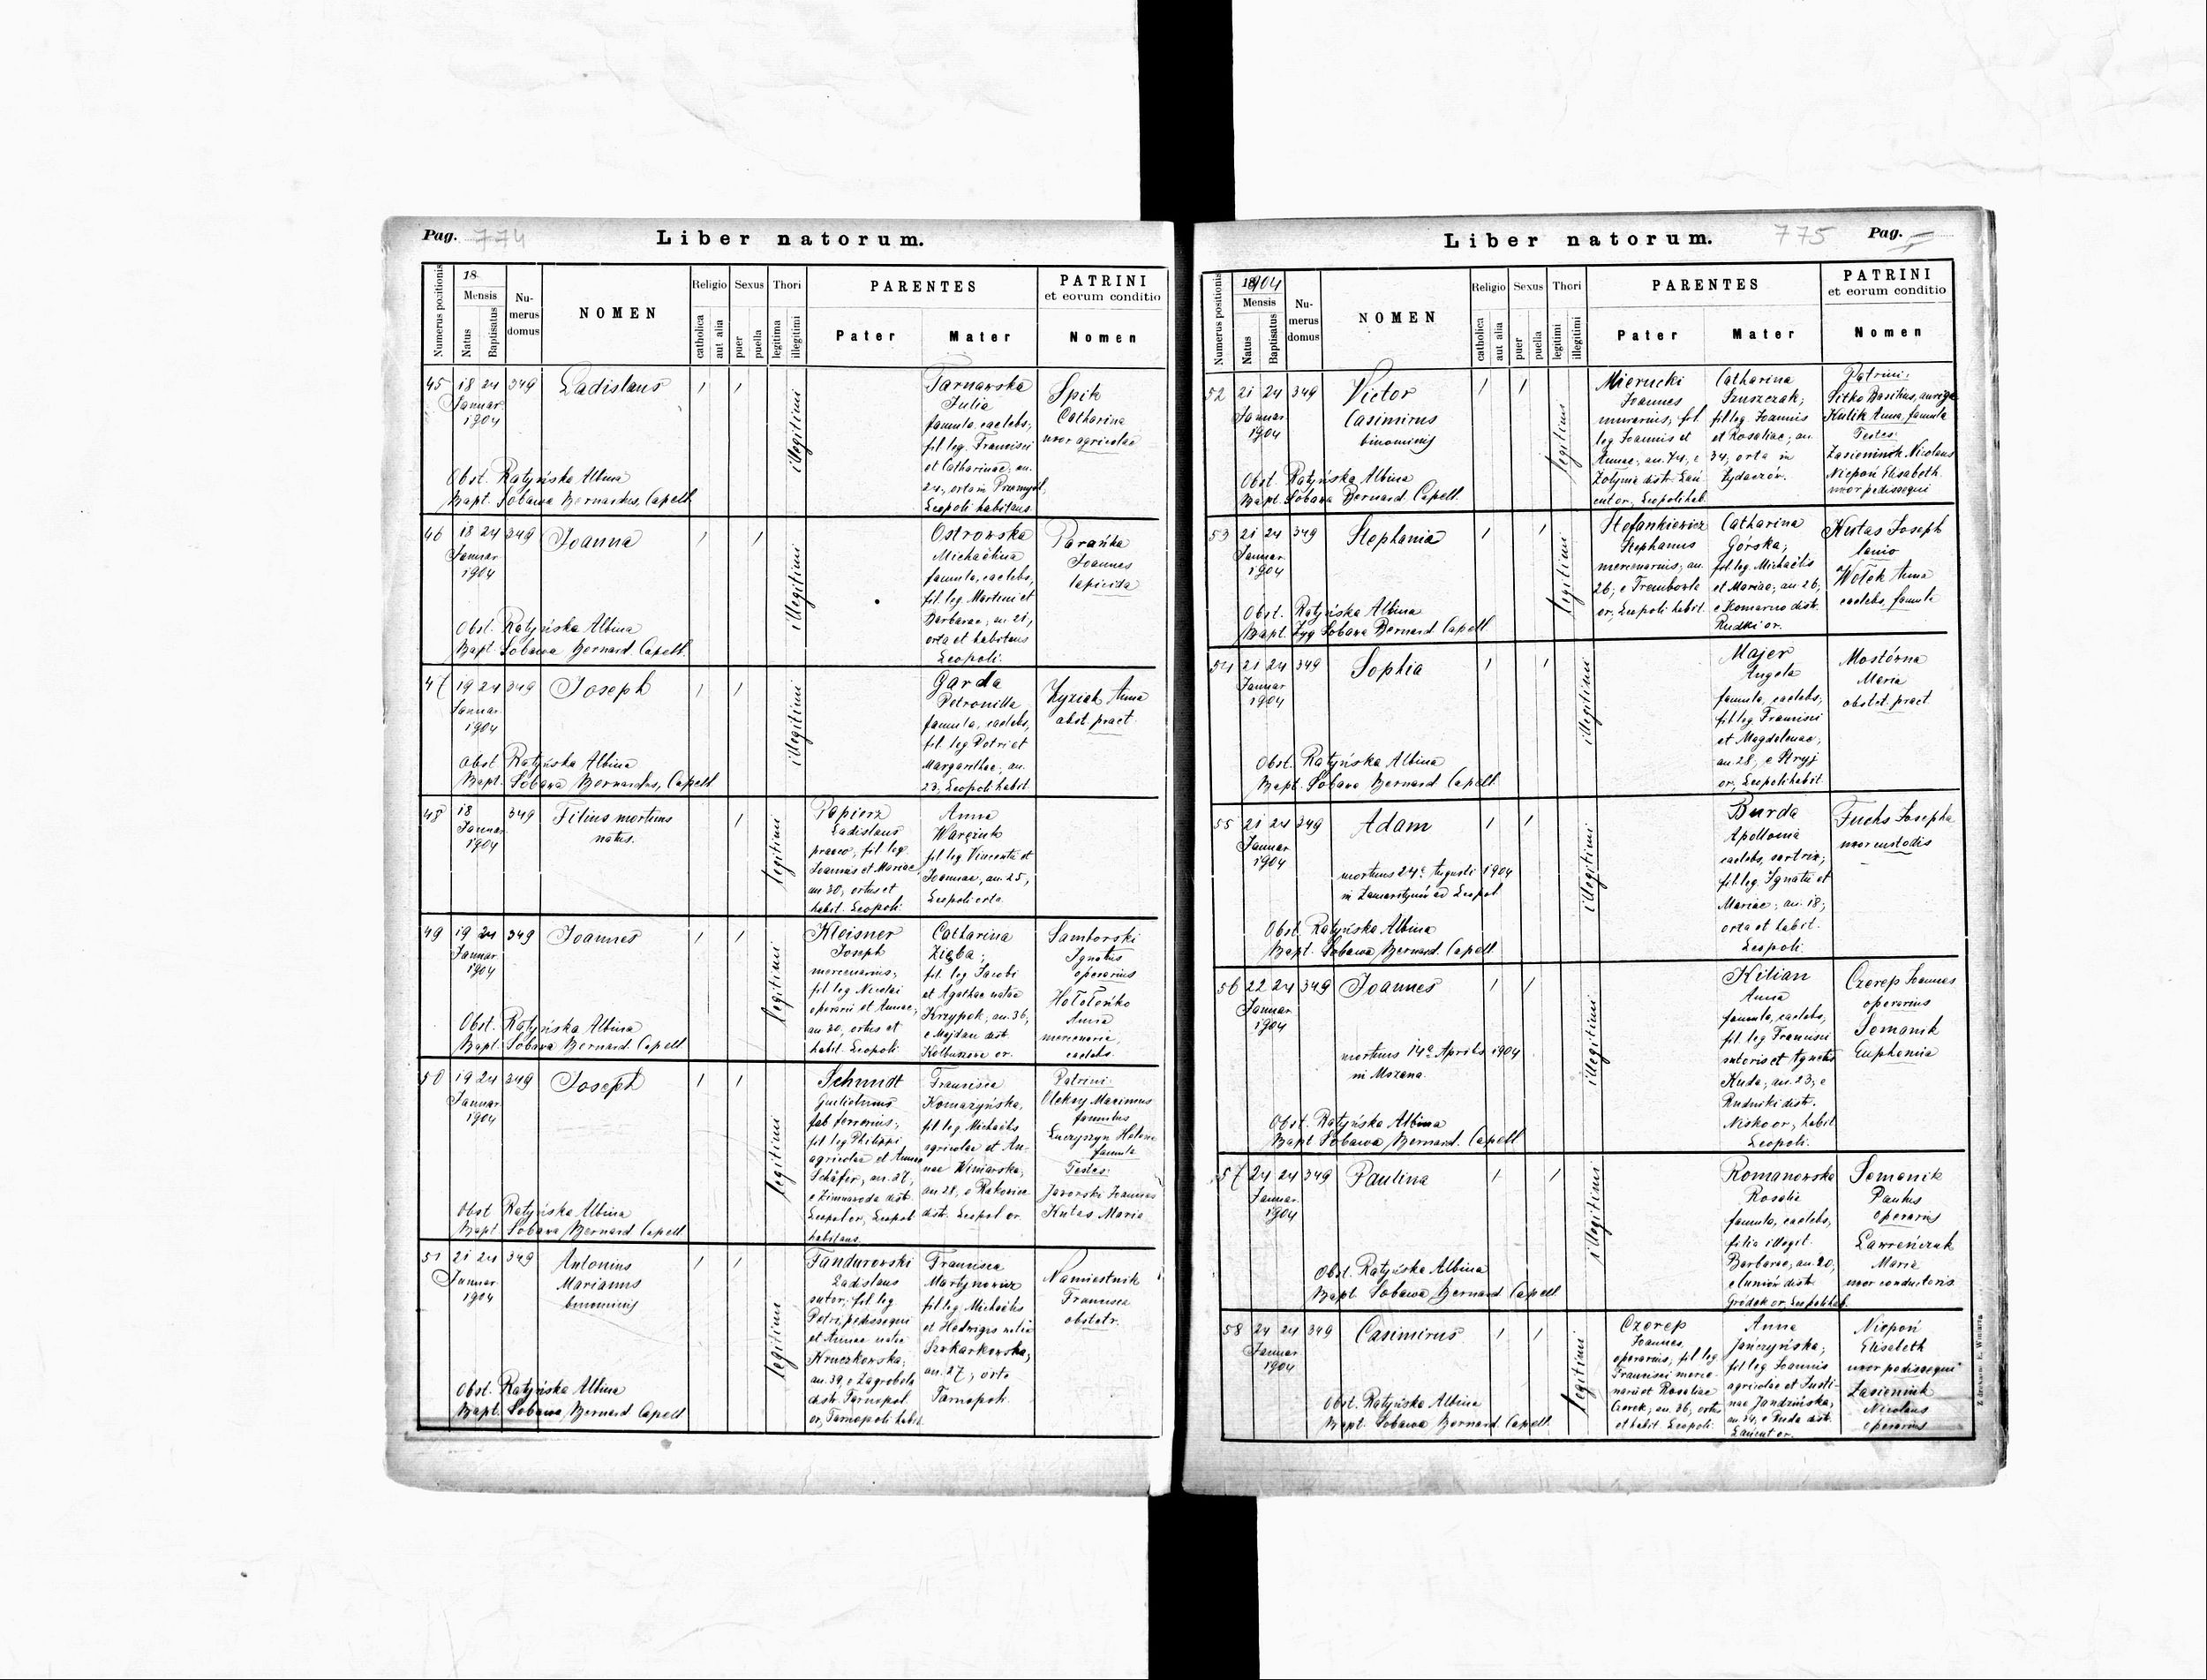 Pag. 774
Liber natorum.
Numerus positionis
18
Mensis
Natus
Baptisatus
Numerus domus
NOMEN
Religio
catholica
aut alia
Sexus
puer
puella
Thori
legitima
illegitimi
PARENTES
Pater
Mater
PATRINI
et eorum conditio
Nomen
45 18 24 349 Ladislaus
Januar
1904
illegitimi
Tarnawska
Julia
famula, caelebs,
fil. leg. Francisci
et Catharinae, an.
24, orta in
Leopoli habitans
Spik
Catharina
uxor agricolae
Obst. Ratyńska Albina
Bapt. Sobawa Bernardus, Capell.
46 18 24 349 Joanna
Januar
1904
illegitimi
Ostrowska
Michaëlina
famula, caelebs,
fil. leg. Martini et
Barbarae, an. 21,
orta et habitans
Leopoli.
Joannes
lapicida
Obst. Ratyńska Albina
Bapt. Sobawa Bernard. Capell.
47 19 24 349 Joseph
Januar
1904
illegitimi
Garda
Petronilla
famula, caelebs,
fil. leg. Petri et
Margarethae, an.
23, Leopoli habit.
Anna
obst. pract.
Obst. Ratyńska Albina
Bapt. Sobawa Bernardus, Capell
48 18 349 Filius mortuus
Januar
1904
natus.
legitimi
Papierz
Ladislaus
praeco, fil. leg.
Joannis et Mariae,
an. 30, ortus et
habit. Leopoli.
Anna
fil. leg. Vincentii et
Joannae, an. 25,
Leopoli orta.
49 19 24 349 Joannes
Januar
1904
legitimi
Kleisner
Joseph
mercenarius,
fil. leg. Nicolai
operarii et Annae,
an. 30, ortus et
habit. Leopoli
Catharina
Zięba;
fil. leg. Jacobi
et Agathae natae
Krzypek, an. 36,
e Majdan distr.
or.
Samborski
Ignatus
operarius
Hołotońko
Anna
mercenaria,
caelebs.
Obst. Ratyńska Albina
Bapt. Sobawa Bernard. Capell
50 19 24 349 Joseph
Januar
1904
legitimi
Schmidt
fab. ferrarius,
fil. leg. Philippi
agricolae et Annae
Schäfer, an. 27,
e Zimnawoda distr.
Leopol or., Leopoli
habitans.
Francisca
Komażyńska,
fil. leg. Michaëlis
agricolae et Annae
Winiarska,
an. 28, e Rakowiec
distr. Leopol or.
Patrini:
Oleksy Maximus
famulus
Helena
famula
Testes:
Jaworski Joannes
Kutas Maria
Obst. Ratyńska Albina
Bapt. Sobawa Bernard Capell
51 21 24 349 Antonius
Januar
1904
Marianus
binominis
legitimi
Tandurowski
Ladislaus
sutor, fil. leg.
Petri, pedissequi
et Annae natae
Kruczkowska,
an. 39, e Zagrobela
distr. Tarnopol
or., Tarnopoli habit.
Francisca
Martynowicz
fil. leg. Michaëlis
et Hedvigis natae
an. 27, orta
Tarnopoli.
Namiestnik
Francisca
obstetr.
Obst. Ratyńska Albina
Bapt. Sobawa Bernard Capell
Liber natorum.
775 Pag.
Numerus positionis
1904
Mensis
Natus
Baptisatus
Numerus domus
NOMEN
Religio
catholica
aut alia
Sexus
puer
puella
Thori
legitimi
illegitimi
PARENTES
Pater
Mater
PATRINI
et eorum conditio
Nomen
52 21 24 349 Victor
Januar
1904
Casimirus
binominis
legitimus
Mierucki
Joannes
murarius, fil.
leg. Joannis et
Annae, an. 74, e
Żołynia distr. Łańcut
or., Leopoli hab.
Catharina
Szuszczak;
fil. leg. Joannis
et Rosaliae, an.
34, orta in
Żydaczów.
Patrini:
Sitko Basilius, auriga
Kulik Anna, famula
Testes:
Zasieninik Nicolaus
Niepoń Elisabeth
uxor pedissequi
Obst. Ratyńska Albina
Bapt. Sobawa Bernard. Capell.
53 21 24 349 Stephania
Januar
1904
legitimi
Stefankiewicz
Stephanus
mercenarius, an.
26, e Trembowla
or., Leopoli habit.
Catharina
Górska;
fil. leg. Michaëlis
et Mariae, an. 26,
e Komarno distr.
Rudki or.
Kutas Joseph
lanio
Wołek Anna
caelebs, famula
Obst. Ratyńska Albina
Bapt. Sobawa Bernard Capell
54 21 24 349 Sophia
Januar
1904
illegitimi
Majer
Angela
famula, caelebs,
fil. leg. Francisci
et Magdalenae,
an. 28, e Stryj
or., Leopoli habit.
Mostórna
Maria
obstet. pract.
Obst. Ratyńska Albina
Bapt. Sobawa Bernard Capell
55 21 24 349 Adam
Januar
1904
mortuus 24a Augusti 1904
in Zamarstynów ad Leopol
illegitimi
Burda
Apollonia
caelebs, sartrix,
fil. leg. Ignatii et
Mariae, an. 18,
orta et habit.
Leopoli.
Fuchs Josepha
uxor custodis
Obst. Ratyńska Albina
Bapt. Sobawa Bernard. Capell.
56 22 24 349 Joannes
Januar
1904
mortuus 14a Aprilis 1904
in Mszana.
illegitimi
Kilian
Anna
famula, caelebs,
fil. leg. Francisci
sutoris et Agnetis
Kuda, an. 23, e
Rudniki distr.
Nisko or., habit.
Leopoli.
Czerep Joannes
operarius
Semanik
Euphemia
Obst. Ratyńska Albina
Bapt. Sobawa Bernard. Capell
57 24 24 349 Paulina
Januar
1904
illegitimi
Romanowska
Rosalia
famula, caelebs,
filia illegit.
Barbarae, an. 20,
e Cuniów distr.
Gródek or., Leopoli hab.
Semanik
Paulus
operarius
Ławreńczuk
Maria
uxor conductoris
Obst. Ratyńska Albina
Bapt. Sobawa Bernard Capell
58 24 24 349 Casimirus
Januar
1904
legitimi
Czerep
Joannes,
operarius, fil. leg.
Francisci mercenarii
et Rosaliae
an. 36, ortus
et habit. Leopoli.
Anna
Jańczyńska;
fil. leg. Joannis
agricolae et Justinae
Jandzińska,
an. 34, e Ruda distr.
Łańcut or.
Niepoń
Elisabeth
uxor pedissequi
Zasieniuk
Nicolaus
operarius
Obst. Ratyńska Albina
Bapt. Sobawa Bernard Capell.
Z drukarni E. Winiarza